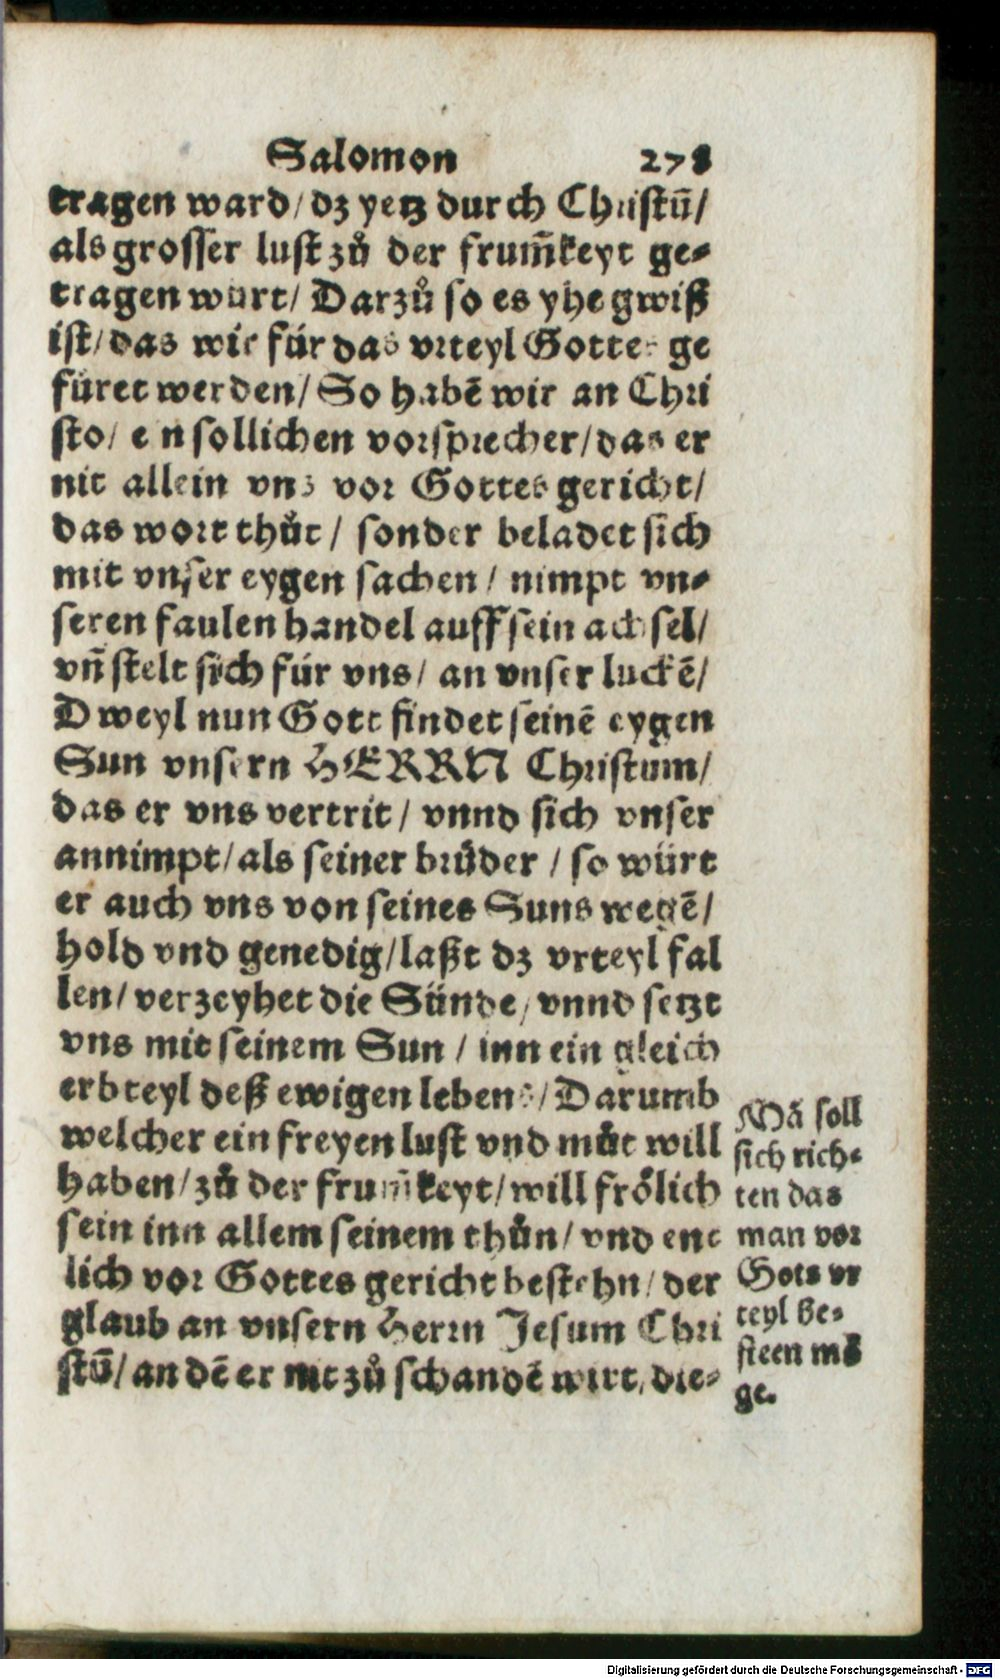 Salomon 278
tragen ward/ dz yetz durch Christū/
als grosser lust zů der frum̄keyt ge-
tragen wurt/ Darzů so es yhe gwiß
ist/ das wir für das vrteyl Gottes ge
füret werden/ So habē wir an Chri
sto/ ein sollichen vorsprecher/ das er
nit allein vns vor Gottes gericht/
das wort thůt/ sonder beladet sich
mit vnser eygen sachen/ nimpt vn-
seren faulen handel auff sein achsel/
vn̄ stelt sich für vns/ an vnser luckē/
Dweyl nun Gott findet seinē eygen
Sun vnsern HERRN Christum/
das er vns vertrit/ vnnd sich vnser
annimpt/ als seiner brůder/ so würt
er auch vns von seines Suns wegē/
hold vnd genedig/ laßt dz vrteyl fal
len/ verzeyhet die Sünde/ vnnd setzt
vns mit seinem Sun/ inn ein gleich
erbteyl deß ewigen lebens/ Darumb
welcher ein freyen lust vnd můt will
haben/ zů der frum̄keyt/ will frölich
sein inn allem seinem thůn/ vnd ent
lich vor Gottes gericht bestehn/ der
glaub an vnsern Herrn Jesum Chri
stū/ an dē er nit zů schandē wirt, die-
Mā soll
sich rich-
ten das
man vor
Gots vr
teyl be-
steen mö
ge.
Digitalisierung gefördert durch die Deutsche Forschungsgemeinschaft - DFG